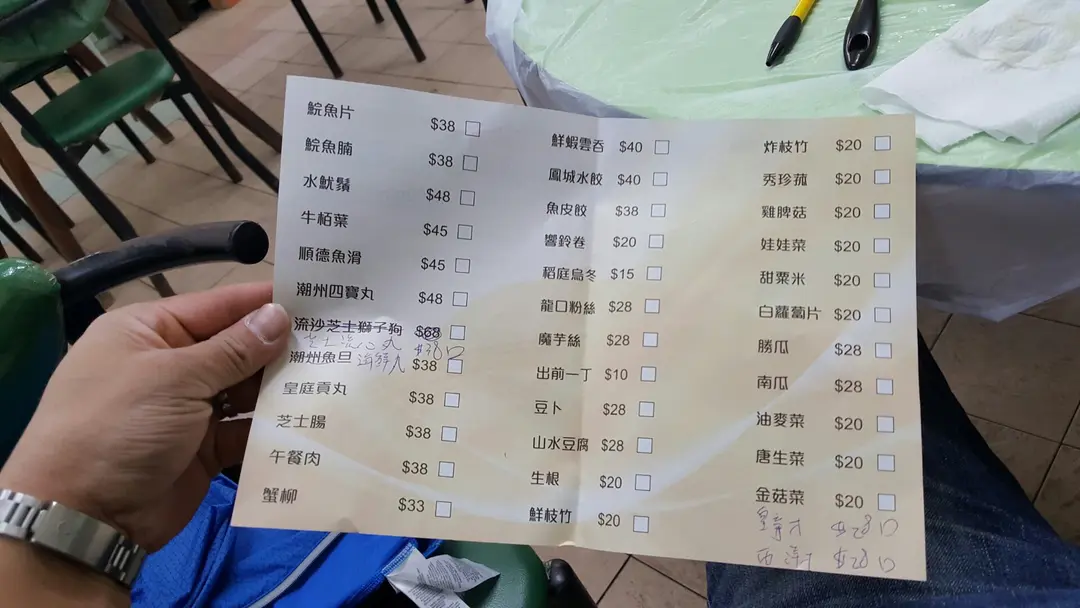 鯇魚片 $38 □
鯇魚腩 $38 □
水魷鬚 $48 □
牛栢葉 $45 □
順德魚滑 $45 □
潮州四寶丸 $48 □
流沙芝士獅子狗 $68 □
芝士流心丸 $38 □
潮州魚旦 海鮮丸 $38 □
皇庭貢丸 $38 □
芝士腸 $38 □
午餐肉 $38 □
蟹柳 $33 □
鮮蝦雲吞 $40 □
鳳城水餃 $40 □
魚皮餃 $38 □
響鈴卷 $20 □
稻庭烏冬 $15 □
龍口粉絲 $28 □
魔芋絲 $28 □
出前一丁 $10 □
豆卜 $28 □
山水豆腐 $28 □
生根 $20 □
鮮枝竹 $20 □
炸枝竹 $20 □
秀珍菰 $20 □
雞脾菇 $20 □
娃娃菜 $20 □
甜粟米 $20 □
白蘿蔔片 $20 □
勝瓜 $28 □
南瓜 $28 □
油麥菜 $20 □
唐生菜 $20 □
金菇菜 $20 □
$28 □
西洋才 $28 □